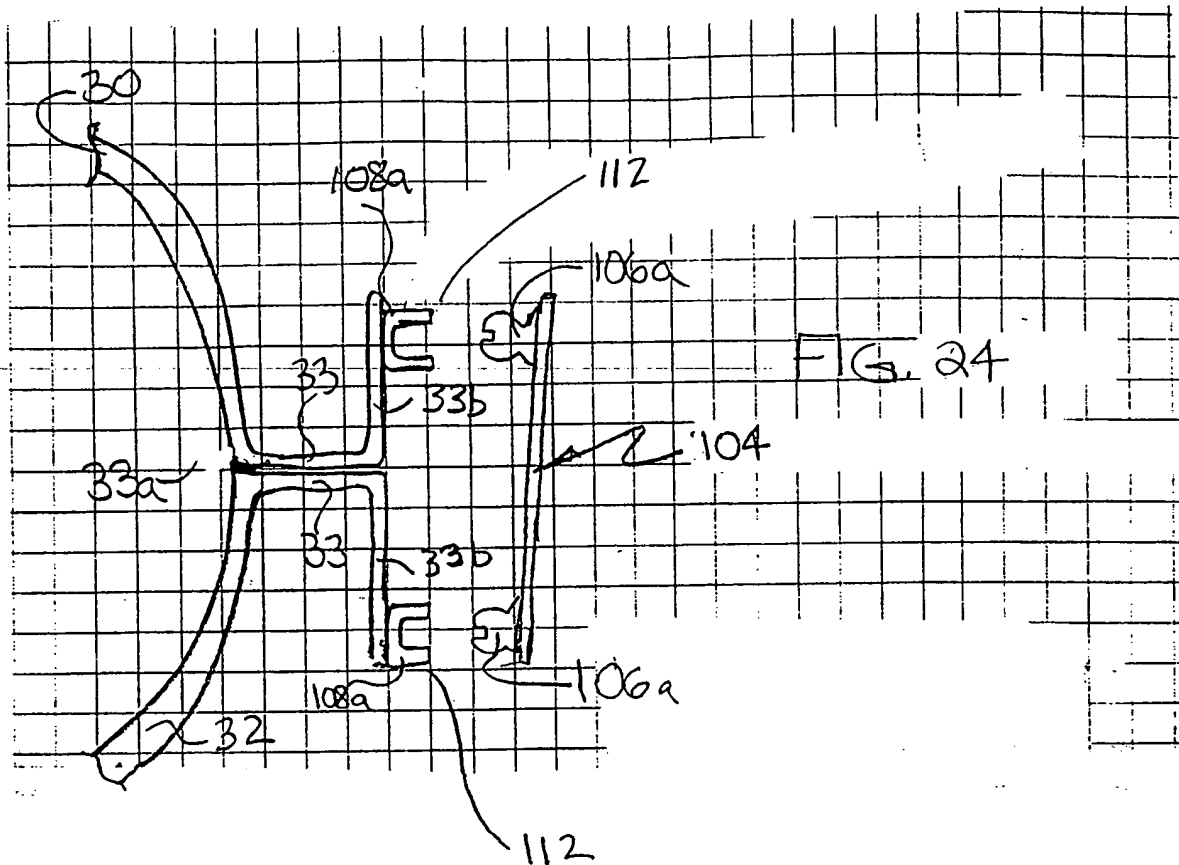 30
108a
112
106a
FIG. 24
33
33b
104
33a
33
33b
108a
106a
32
112